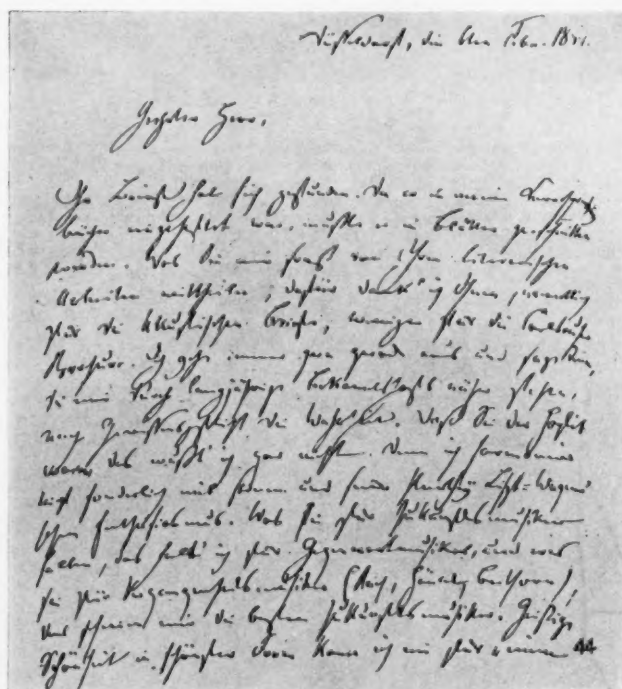 Düsseldorf, den 6ten Febr. 1854.
Geehrter Herr,
Ihr Bericht hat sich gefunden. Da er in meine Correspondenz-
bücher eingeheftet war, mußte er in Blätter geschnitten
werden. Was Sie mir sonst von Ihren literarischen
Arbeiten mittheilen, dafür dank' ich Ihnen,
für die akustischen Briefe, weniger für die Karlsruher
Brochure. Ich gehe immer gern gerade aus und sage denen,
die mir durch langjährige Bekanntschaft näher stehen,
nach die Wahrheit. Daß Sie der Hoplit
waren, das wußt' ich gar nicht. Denn ich harmonire
nicht sonderlich mit seinem und seiner Parthei Liszt-Wagner
schen Enthusiasmus. Was Sie für Zukunftsmusiker
halten, das halt' ich für Gegenwartsmusiker, und was
Sie für Vergangenheitsmusiker (Bach, Händel, Beethoven),
das scheinen mir die besten Zukunftsmusiker. Geistige
Schönheit in schönster Form kann ich nie für "einen 44